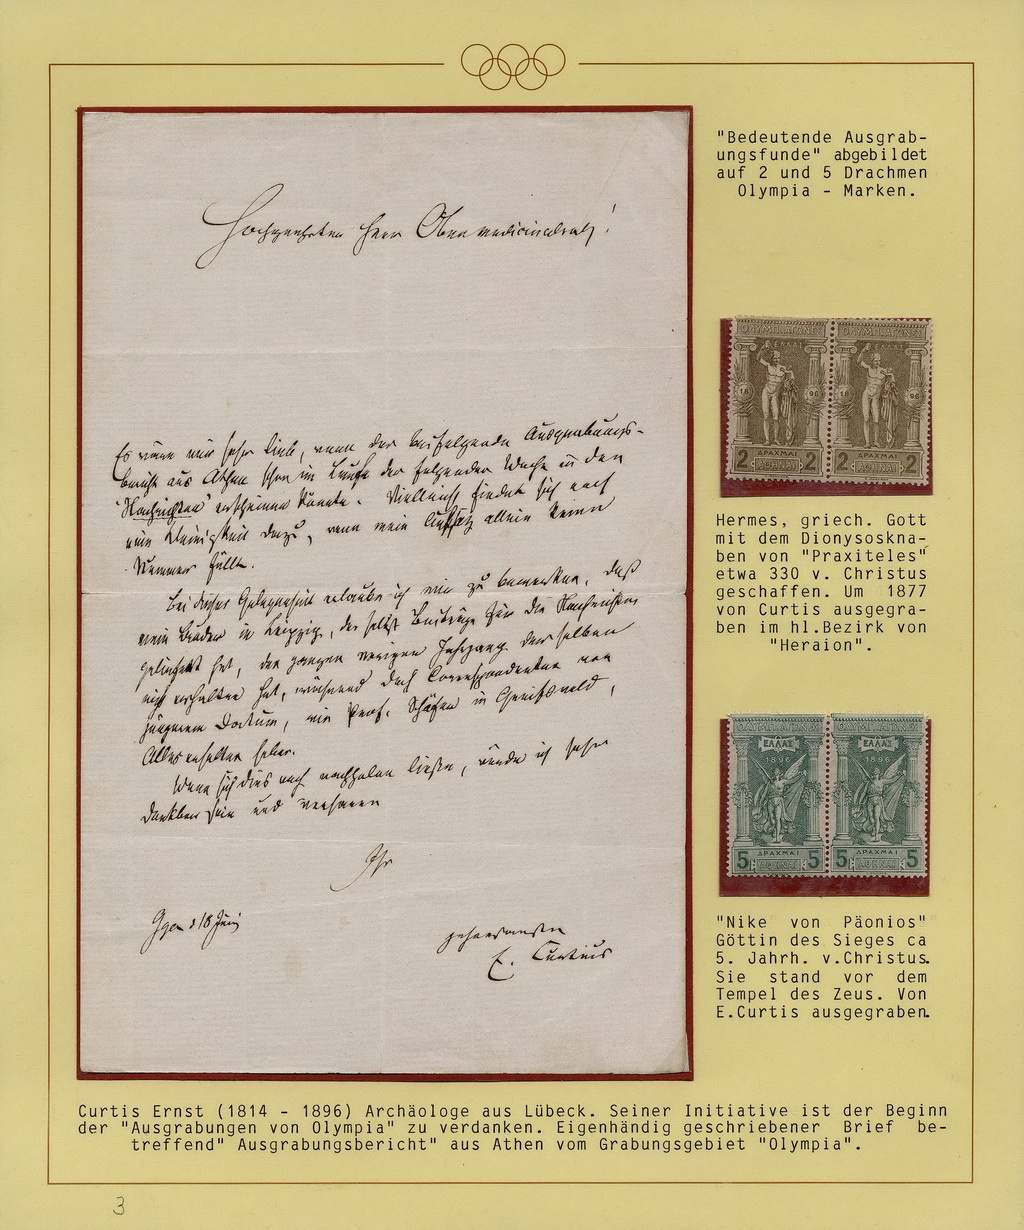 "Bedeutende Ausgrab-
ungsfunde" abgebildet
auf 2 und 5 Drachmen
Olympia - Marken.
Hochgeehrter Herr Obermedicinalrath!
Es wäre mir sehr lieb, wenn der beifolgende Ausgrabungs-
bericht aus Athen schon im Laufe der folgenden Woche in den
'Nachrichten' erscheinen könnte. Vielleicht findet sich noch
eine Kleinigkeit dazu, wenn mein Aufsatz allein keine
Nummer füllt.
Bei dieser Gelegenheit erlaube ich mir zu bemerken, daß
mein Bruder in Leipzig, der selbst Beiträge für die Nachrichten
geliefert hat, den ganzen vorigen Jahrgang derselben
nicht erhalten hat, während doch Correspondenten von
jüngerem Datum, wie Prof. Schäfer in Greifswald,
Alles erhalten haben.
Wenn sich dies noch nachholen ließe, würde ich sehr
dankbar sein und verharre
Ihr
18 Juni
gehorsamster
E. Curtius
ΟΛΥΜΠ. ΑΓΩΝΕΣ
ΕΛΛΑΣ
18 96
ΔΡΑΧΜΑΙ
2 ΑΘΗΝΑΙ 2
ΟΛΥΜΠ. ΑΓΩΝΕΣ
ΕΛΛΑΣ
18 96
ΔΡΑΧΜΑΙ
2 ΑΘΗΝΑΙ 2
Hermes, griech. Gott
mit dem Dionysoskna-
ben von "Praxiteles"
etwa 330 v. Christus
geschaffen. Um 1877
von Curtis ausgegra-
ben im hl.Bezirk von
"Heraion".
ΟΛΥΜΠ. ΑΓΩΝΕΣ
ΕΛΛΑΣ
1896
ΔΡΑΧΜΑΙ
5 ΑΘΗΝΑΙ 5
ΟΛΥΜΠ. ΑΓΩΝΕΣ
ΕΛΛΑΣ
1896
ΔΡΑΧΜΑΙ
5 ΑΘΗΝΑΙ 5
"Nike von Päonios"
Göttin des Sieges ca
5. Jahrh. v.Christus.
Sie stand vor dem
Tempel des Zeus. Von
E.Curtis ausgegraben.
Curtis Ernst (1814 - 1896) Archäologe aus Lübeck. Seiner Initiative ist der Beginn
der "Ausgrabungen von Olympia" zu verdanken. Eigenhändig geschriebener Brief be-
treffend" Ausgrabungsbericht" aus Athen vom Grabungsgebiet "Olympia".
3